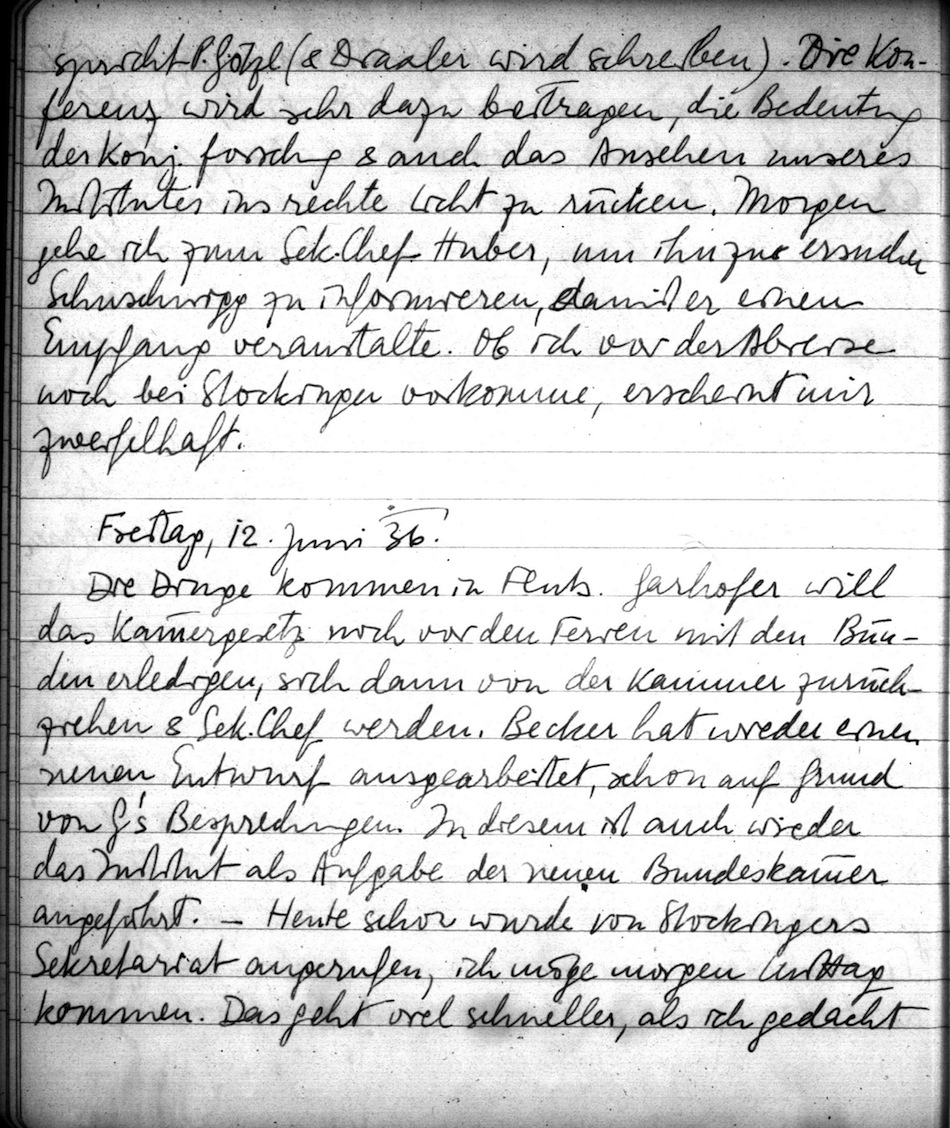 spricht P. Götzl (& Draaler wird schreiben). Die Kon-
ferenz wird sehr dazu beitragen, die Bedeutung
der Konj. forschg & auch das Ansehen unseres
Institutes ins rechte Licht zu rücken. Morgen
gehe ich zum Sek.Chef Huber, um ihn zu ersuchen
Schuschnigg zu informieren, damit er einen
Empfang veranstalte. Ob ich vor der Abreise
noch bei Stockinger vorkomme, erscheint mir
zweifelhaft.
Freitag, 12. Juni 36.
Die Dinge kommen in Fluß. Garhofer will
das Kam̄ergesetz noch vor den Ferien mit den Bün-
den erledigen, sich dann von der Kammer zurück-
ziehen & Sek.Chef werden. Becker hat wieder einen
neuen Entwurf ausgearbeitet, schon auf Grund
von G's Besprechungen. In diesem ist auch wieder
das Institut als Aufgabe der neuen Bundeskam̄er
angeführt. – Heute schon wurde von Stockingers
Sekretariat angerufen, ich möge morgen Mittag
kommen. Das geht viel schneller, als ich gedacht